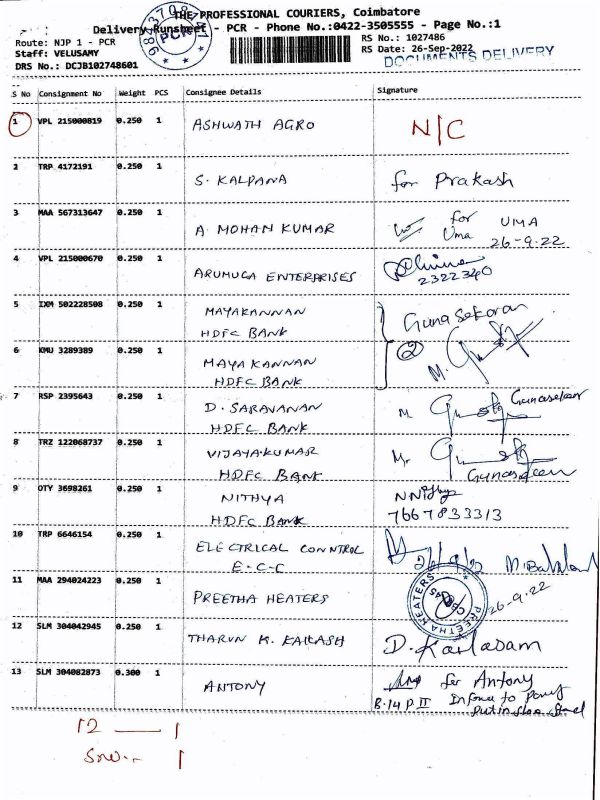 THE PROFESSIONAL COURIERS, Coimbatore
Delivery Runsheet - PCR - Phone No.:0422-3505555 - Page No.:1
Route: NJP 1 - PCR
RS No.: 1027486
Staff: VELUSAMY
RS Date: 26-Sep-2022
DRS No.: DCJB102748601
DOCUMENTS DELIVERY
PCR
S No Consignment No Weight PCS Consignee Details Signature
1 VPL 215000819 0.250 1 ASHWATH AGRO N/C
2 TRP 4172191 0.250 1 S. KALPANA for Prakash
3 MAA 567313647 0.250 1 A MOHAN KUMAR for Uma UMA
26-9.22
4 VPL 215000670 0.250 1 ARUMUGA ENTERPRISES
2322340
5 IXM 502228508 0.250 1 MAYAKANNAN Gunasekaran
HDFC BANK
②
6 KMU 3289389 0.250 1 MAYA KANNAN M.
HDFC BANK
7 RSP 2395643 0.250 1 D. SARAVANAN M Gunasekaran
HDFC BANK
8 TRZ 122068737 0.250 1 VIJAYAKUMAR M.
HDFC BANK Gunasekaran
9 OTY 3698261 0.250 1 NITHYA
HDFC BANK 7667833313
10 TRP 6646154 0.250 1 ELECTRICAL CONNTROL
E-C-C
11 MAA 294024223 0.250 1 PREETHA HEATERS 26-9.22
PREETHA HEATERS
12 SLM 304042945 0.250 1 THARUN K. KAILASH D. Kailasam
13 SLM 304082873 0.300 1 ANTONY for Antony
B.14 P II
12 — 1
1